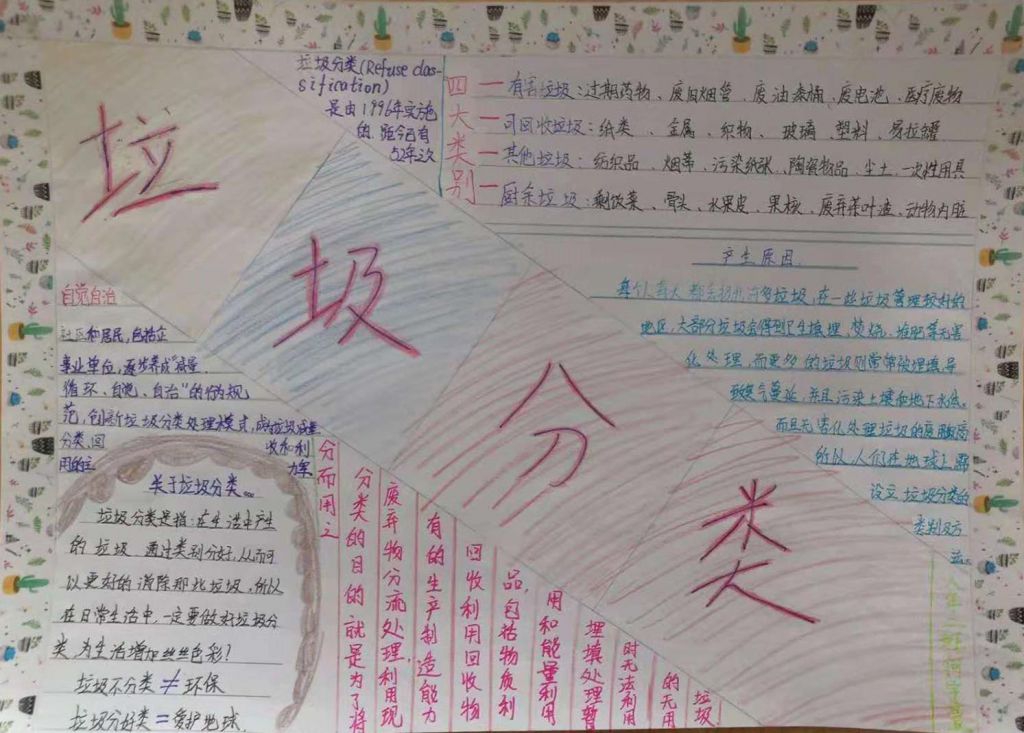 垃
圾
分
类
垃圾分类(Refuse clas-
sification)
是由1996年实施
的 距今已有
52年次
四大类别
有害垃圾:过期药物、废旧烟管、废油漆桶、废电池、医疗废物
可回收垃圾:纸类、金属、织物、玻璃、塑料、易拉罐
其他垃圾:纺织品、烟蒂、污染纸张、陶瓷物品、尘土、一次性用具
厨余垃圾:剩饭菜、骨头、水果皮、果核、废弃茶叶渣、动物内脏
产生原因
每个人每天都会扔出许多垃圾,在一些垃圾管理较好的
地区,大部分垃圾会得到卫生填埋、焚烧、堆肥等无害
化处理,而更多的垃圾则常常被埋填导
致臭气蔓延,并且污染土壤和地下水体,
而且无害化处理垃圾的费
所以人们在地球上
设立垃圾分类的
类别及方
法
自觉自治
社区和居民,包括企
事业单位,逐步养成“减量
循环、自觉、自治”的行为规
范,创新垃圾分类处理模式,成垃圾减量
分类、回收和利
用的主力军
关于垃圾分类。。。
垃圾分类是指:在生活中产生
的垃圾 通过类别分好,从而可
以更好的消除那些垃圾,所以
在日常生活中,一定要做好垃圾分
类,为生活增加丝丝色彩!
垃圾不分类≠环保
垃圾分好类=爱护地球
分而用之
分类的目的就是为了将
废弃物分流处理,利用现
有的生产制造能力
回收利用回收物
品,包括物质利
用和能量利用
埋填处理暂
时无法利用
的无用
垃圾!
年二班